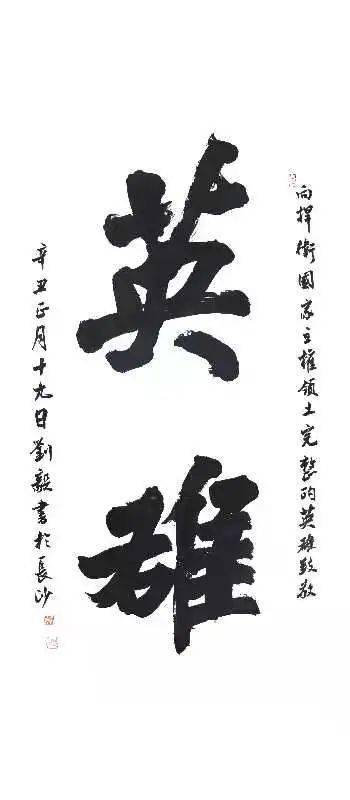 向捍衛國家主權領土完整的英雄致敬
英雄
辛丑正月十九日劉毅書於長沙